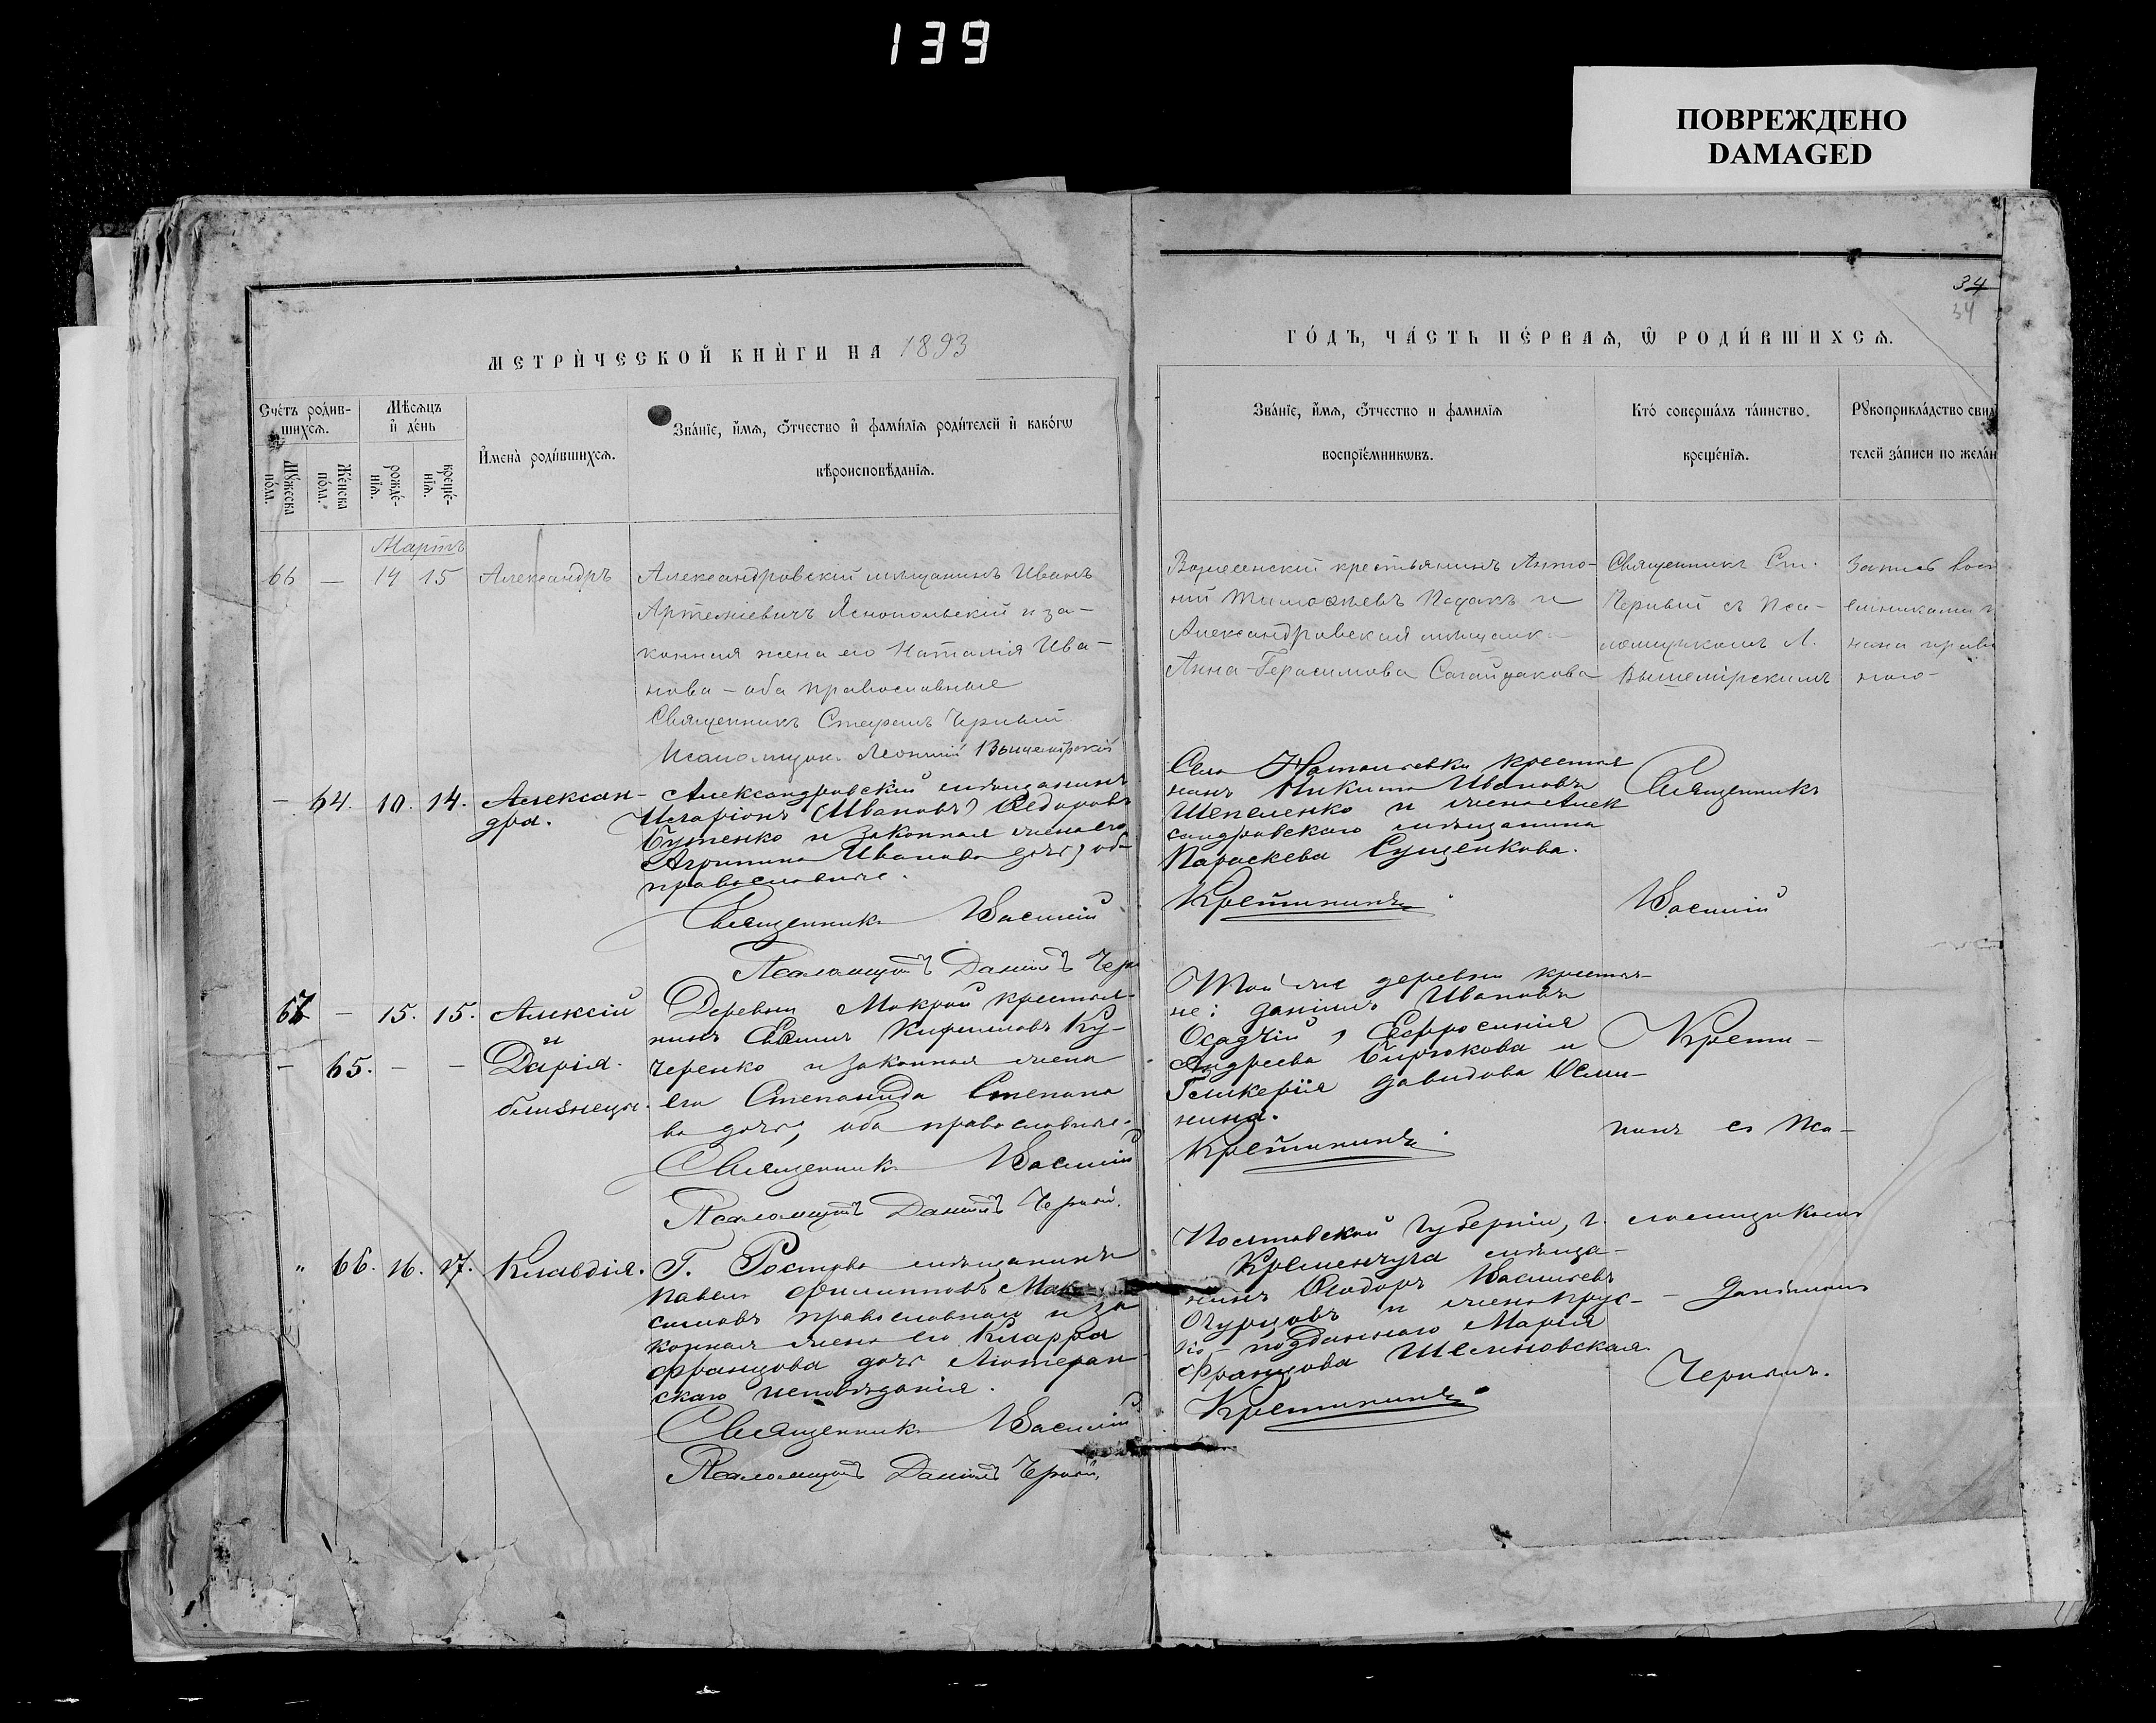 139
ПОВРЕЖДЕНО
DAMAGED
34
34
МЕТРИ́ЧЕСКОЙ КНИ́ГИ НА 1893
ГО́ДЪ, ЧА́СТЬ ПЕ́РВАѦ, Ѡ РОДИ́ВШИХСѦ.
Сче́тъ роди́в-
шихсѧ.
Мѣ́сѧцъ
и де́нь
Мꙋ́жеска
по́ла.
Же́нска
по́ла.
рожде́-
нїѧ.
креще́-
нїѧ.
И҆мена̀ роди́вшихсѧ.
Зва́нїе, и҆́мѧ, ѻ҆́тчество и҆ фами́лїѧ роди́телей и҆ како́гѡ
вѣроисповѣ́данїѧ.
Зва́нїе, и҆́мѧ, ѻ҆́тчество и фами́лїѧ
воспрїе́мникѡвъ.
Кто̀ соверша́лъ та́инство
креще́нїѧ.
Рꙋкоприкла́дство свид
телей за́писи по жела́н
Мартъ
66 — 14 15 Александръ
Александровскій мѣщанинъ Иванъ
Артеміевичъ Яснопольскій и за-
конная жена его Наталія Ива-
нова – оба православные
Священникъ Стефанъ Черный
Псаломщик Леонтій Вышемірскій
Вознесенскій крестьянинъ Анто-
ній Тимофѣевъ и
Александровская мѣщанка
Анна Герасимова Сагайдакова
Священникъ Ст.
Черный съ Пса-
ломщикомъ Л.
Вышемірскимъ
Запись
— 64. 10. 14. Алексан-
дра.
Александровскій мѣщанинъ
Иларіонъ (Ивановъ) Ѳедоровъ
Бутенко и законная жена его
Агрипина Иванова дочь, об
православные.
Священникъ Василій
Псаломщикъ Даніилъ Чер
Села Наталіевки крестья
нинъ Никита Ивановъ
Шепеленко и жена Алек
сандровскаго мѣщанина
Параскева Сущенкова.
Крещининъ
Священникъ
Василій
67 — 15. 15. Алексій
и
— 65. — — Дарія.
близнецы.
Деревни Мокрой крестья-
нинъ Кириловъ Ку-
черенко и законная жена
его Степанида Степано
ва дочь, оба православные.
Священникъ Василій
Псаломщикъ Даніилъ Черный.
Той же деревни крестья-
не: Даніилъ Ивановъ
Осадчій, Евфросинія
Андреева Бирюкова и
Гликерія Давидова Осми-
нина.
Крещининъ
Крети-
нинъ съ Пса-
„ 66. 16. 17. Клавдія.
Г. Ростова мѣщанинъ
Павелъ Филипповъ Мак
симовъ православнаго и за
конная жена его Клара
Францова дочь Лютеран-
скаго исповѣданія.
Священникъ Василій
Псаломщикъ Даніилъ Черный.
Полтавской губерніи, г.
Кременчуга мѣща-
нинъ Ѳеодоръ Васильевъ
Огурцовъ и жена прус-
ко-подданнаго Марія
Францова
Крещининъ
ломщикомъ
— Даніиломъ
Чернымъ.